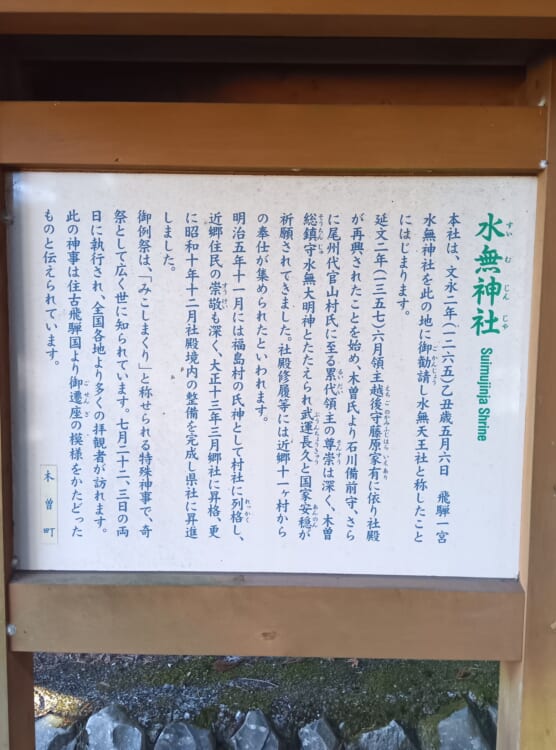 水無神社 Suimujinja Shrine
すいむじんじゃ
本社は、文永二年(一二六五)乙丑歳五月六日　飛騨一宮
水無神社を此の地に御勧請し水無天王社と称したこと
ごかんじょう
にはじまります。
延文二年(一三五七)六月領主越後守藤原家有に依り社殿
えちごのかみふじはらいえあり
が再興されたことを始め、木曽氏より石川備前守、さら
に尾州代官山村氏に至る累代領主の尊崇は深く、木曽
るいだい
そんすう
総鎮守水無大明神とたたえられ武運長久と国家安穏が
ぶうんちょうきゅう
あんのん
祈願されてきました。社殿修履等には近郷十一ヶ村から
の奉仕が集められたといわれます。
明治五年十一月には福島村の氏神として村社に列格し、
れっかく
近郷住民の崇敬も深く、大正十三年三月郷社に昇格、更
すうけい
に昭和十年十二月社殿境内の整備を完成し県社に昇進
しました。
御例祭は、「みこしまくり」と称せられる特殊神事で、奇
お
祭として広く世に知られています。七月二十二、三日の両
日に執行され、全国各地より多くの拝観者が訪れます。
此の神事は往古飛騨国より御遷座の模様をかたどった
ごせんざ
ものと伝えられています。
木曽町